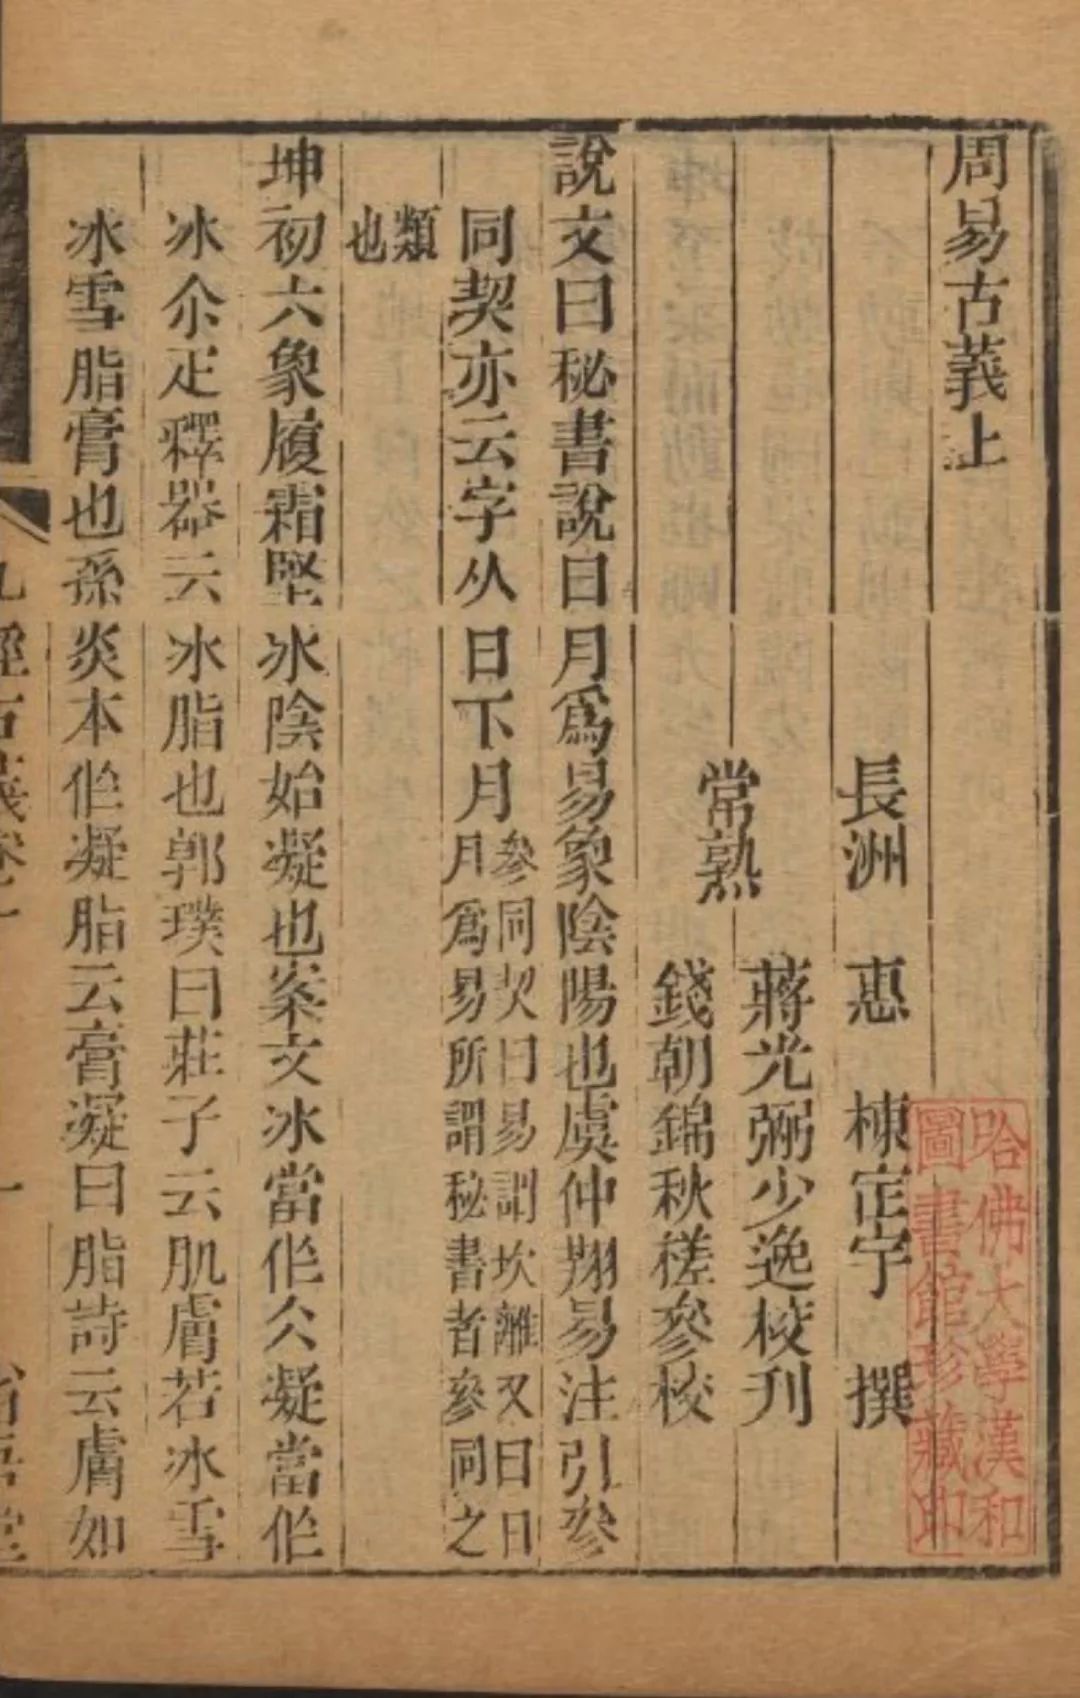 周易古義上
長洲 惠 棟定宇 撰
常熟
蔣光弼少逸校刊
錢朝錦秋槎參校
說文曰秘書說曰月爲易象陰陽也虞仲翔易注引參
同契亦云字从日下月參同契曰易謂坎離又曰日
月爲易所謂秘書者參同之
類
也
坤初六象履霜堅冰陰始凝也案文冰當作仌凝當作
冰尒疋釋器云冰脂也郭璞曰莊子云肌膚若冰雪
冰雪脂膏也孫炎本作凝脂云膏凝曰脂詩云膚如
九經古義卷一
一
省吾堂
哈佛大學漢和
圖書館珍藏印